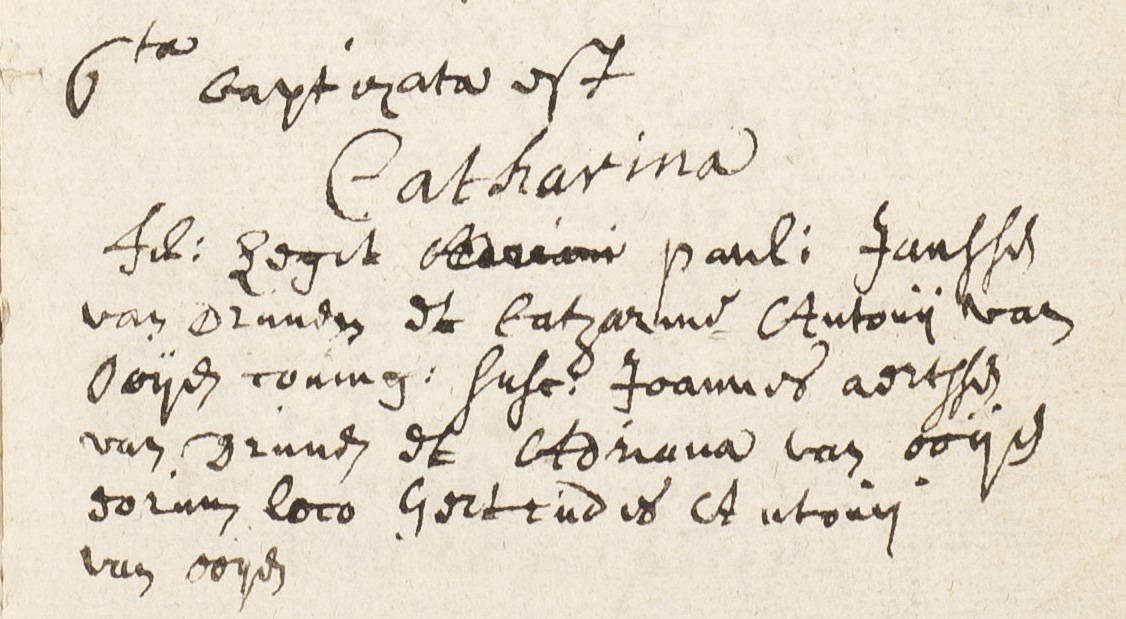 6ta baptizata est
Catharina
fil: Legit Pauli Janssen
van Drunen et Catharinae Antonij van
Ooijen coniug: susc: Joannes Aertssen
van Drunen et Adriana van Ooijen
eorum loco Gertrudis Antonij
van Ooijen